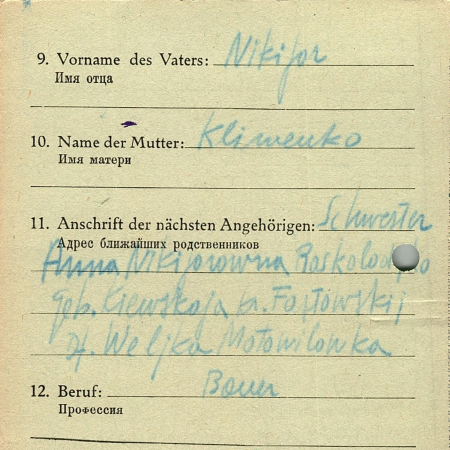 9. Vorname des Vaters: Nikifor
Имя отца
10. Name der Mutter: Klimenko
Имя матери
11. Anschrift der nächsten Angehörigen: Schwester
Адрес ближайших родственников
Anna Nikiforowna
Geb. Kiewskaja r. Fastowskij
Weljka Motowilowka
12. Beruf: Bauer
Профессия